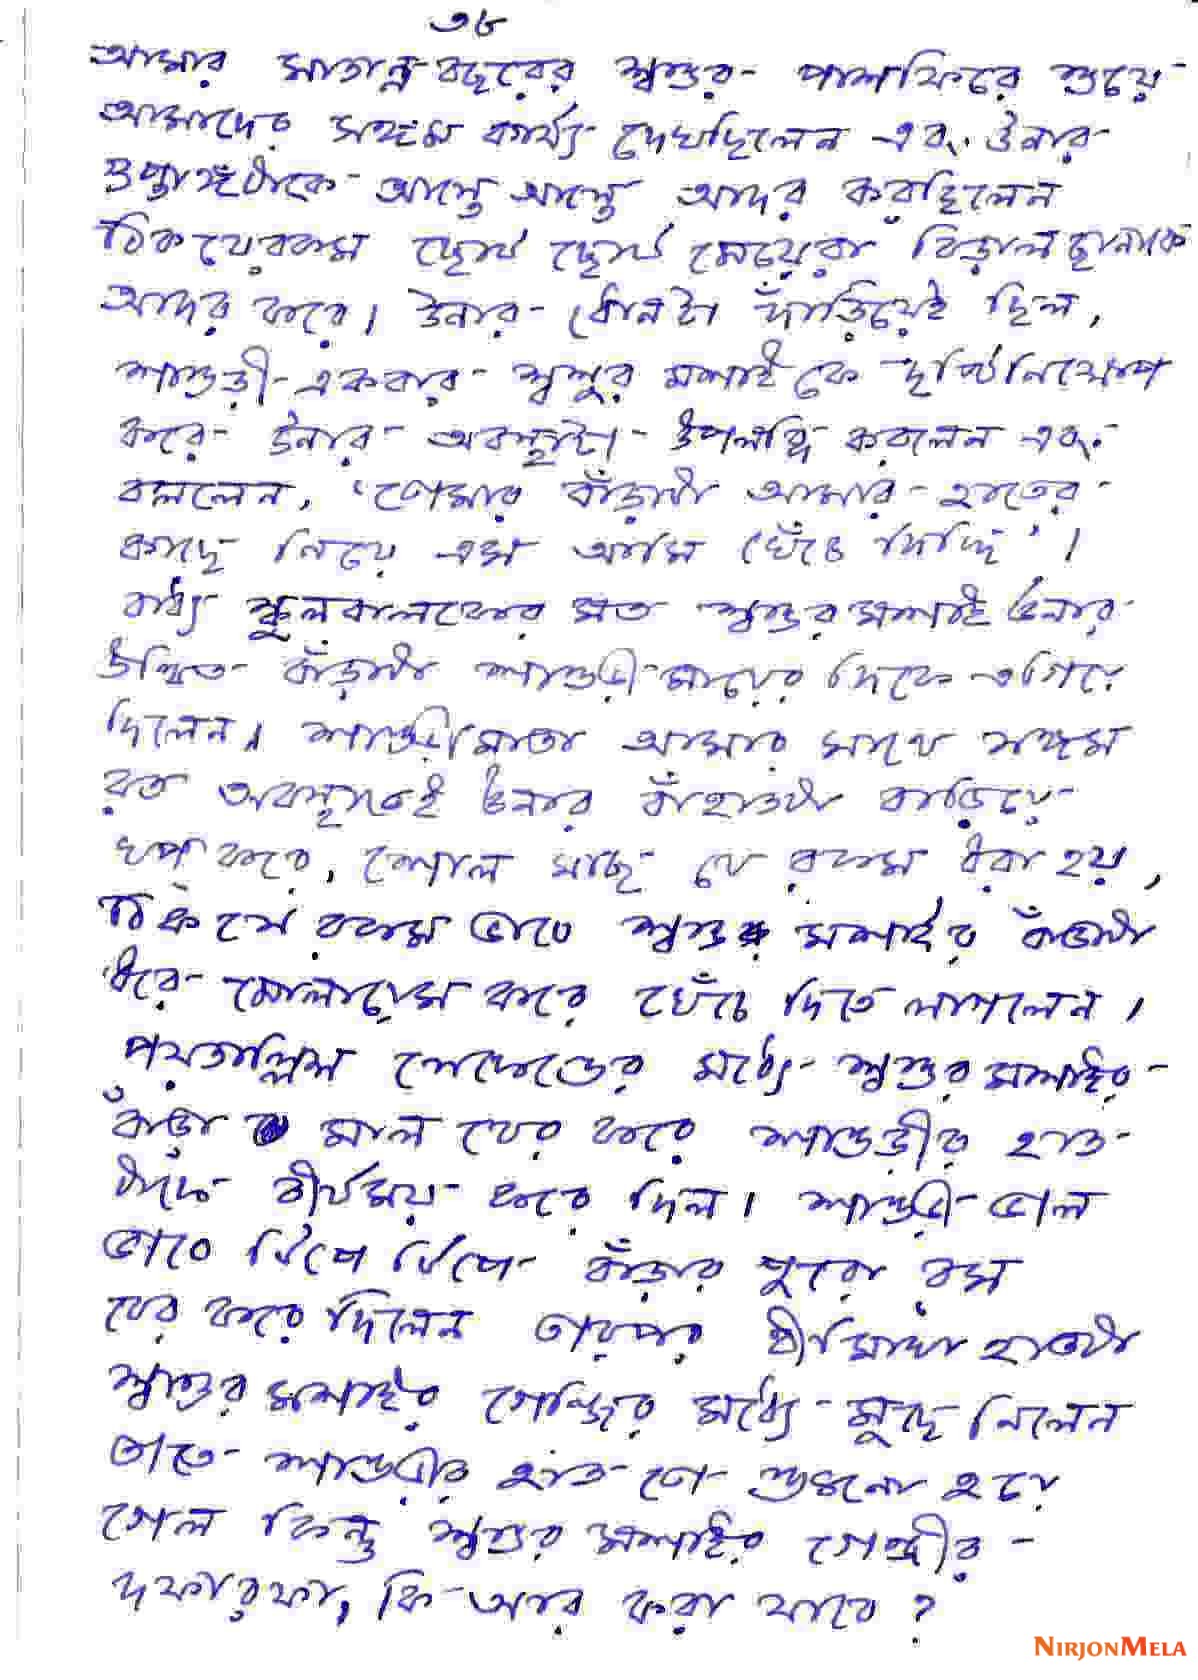 ৩৮
আমার সাতান্ন বছরের শ্বশুর পাশফিরে শুয়ে
আমাদের সঙ্গম কার্য্য দেখছিলেন এবং উনার
গুপ্তাঙ্গটাকে আস্তে আস্তে আদর করছিলেন
ঠিক যেরকম ছোট ছোট মেয়েরা বিড়াল ছানাকে
আদর করে। উনার ধোনটা দাঁড়িয়েই ছিল,
শাশুড়ী একবার শ্বশুর মশাই কে দৃষ্টিনিক্ষেপ
করে উনার অবস্থাটা উপলব্ধি করলেন এবং
বললেন, ‘তোমার বাঁড়াটা আমার হাতের
কাছে নিয়ে এস আমি খেঁচে দিচ্ছি’।
বাধ্য স্কুলবালকের মত শ্বশুর মশাই উনার
উত্থিত বাঁড়াটা শাশুড়ী মায়ের দিকে এগিয়ে
দিলেন। শাশুড়ীমাতা আমার সাথে সঙ্গম
রত অবস্থাতেই উনার বাঁহাতটা বাড়িয়ে
খপ করে, শোল মাছ যে রকম ধরা হয়,
ঠিক সে রকম ভাবে শ্বশুর মশাইর বাঁড়াটা
ধরে মোলায়েম করে খেঁচে দিতে লাগলেন,
পয়তাল্লিশ সেকেন্ডের মধ্যে শ্বশুর মশাইর
বাঁড়া মাল বের করে শাশুড়ীর হাত
টাকে বীর্যময় করে দিল। শাশুড়ী ভাল
ভাবে টিপে টিপে বাঁড়ার পুরো রস
বের করে দিলেন তারপর বীর্যমাখা হাতটা
শ্বশুর মশাইর গেন্জির মধ্যে মুছে নিলেন
তাতে শাশুড়ীর হাত তো শুকনো হয়ে
গেল কিন্তু শ্বশুর মশাইর গেঞ্জীর
দফারফা, কি আর করা যাবে?
NIRJONMELA